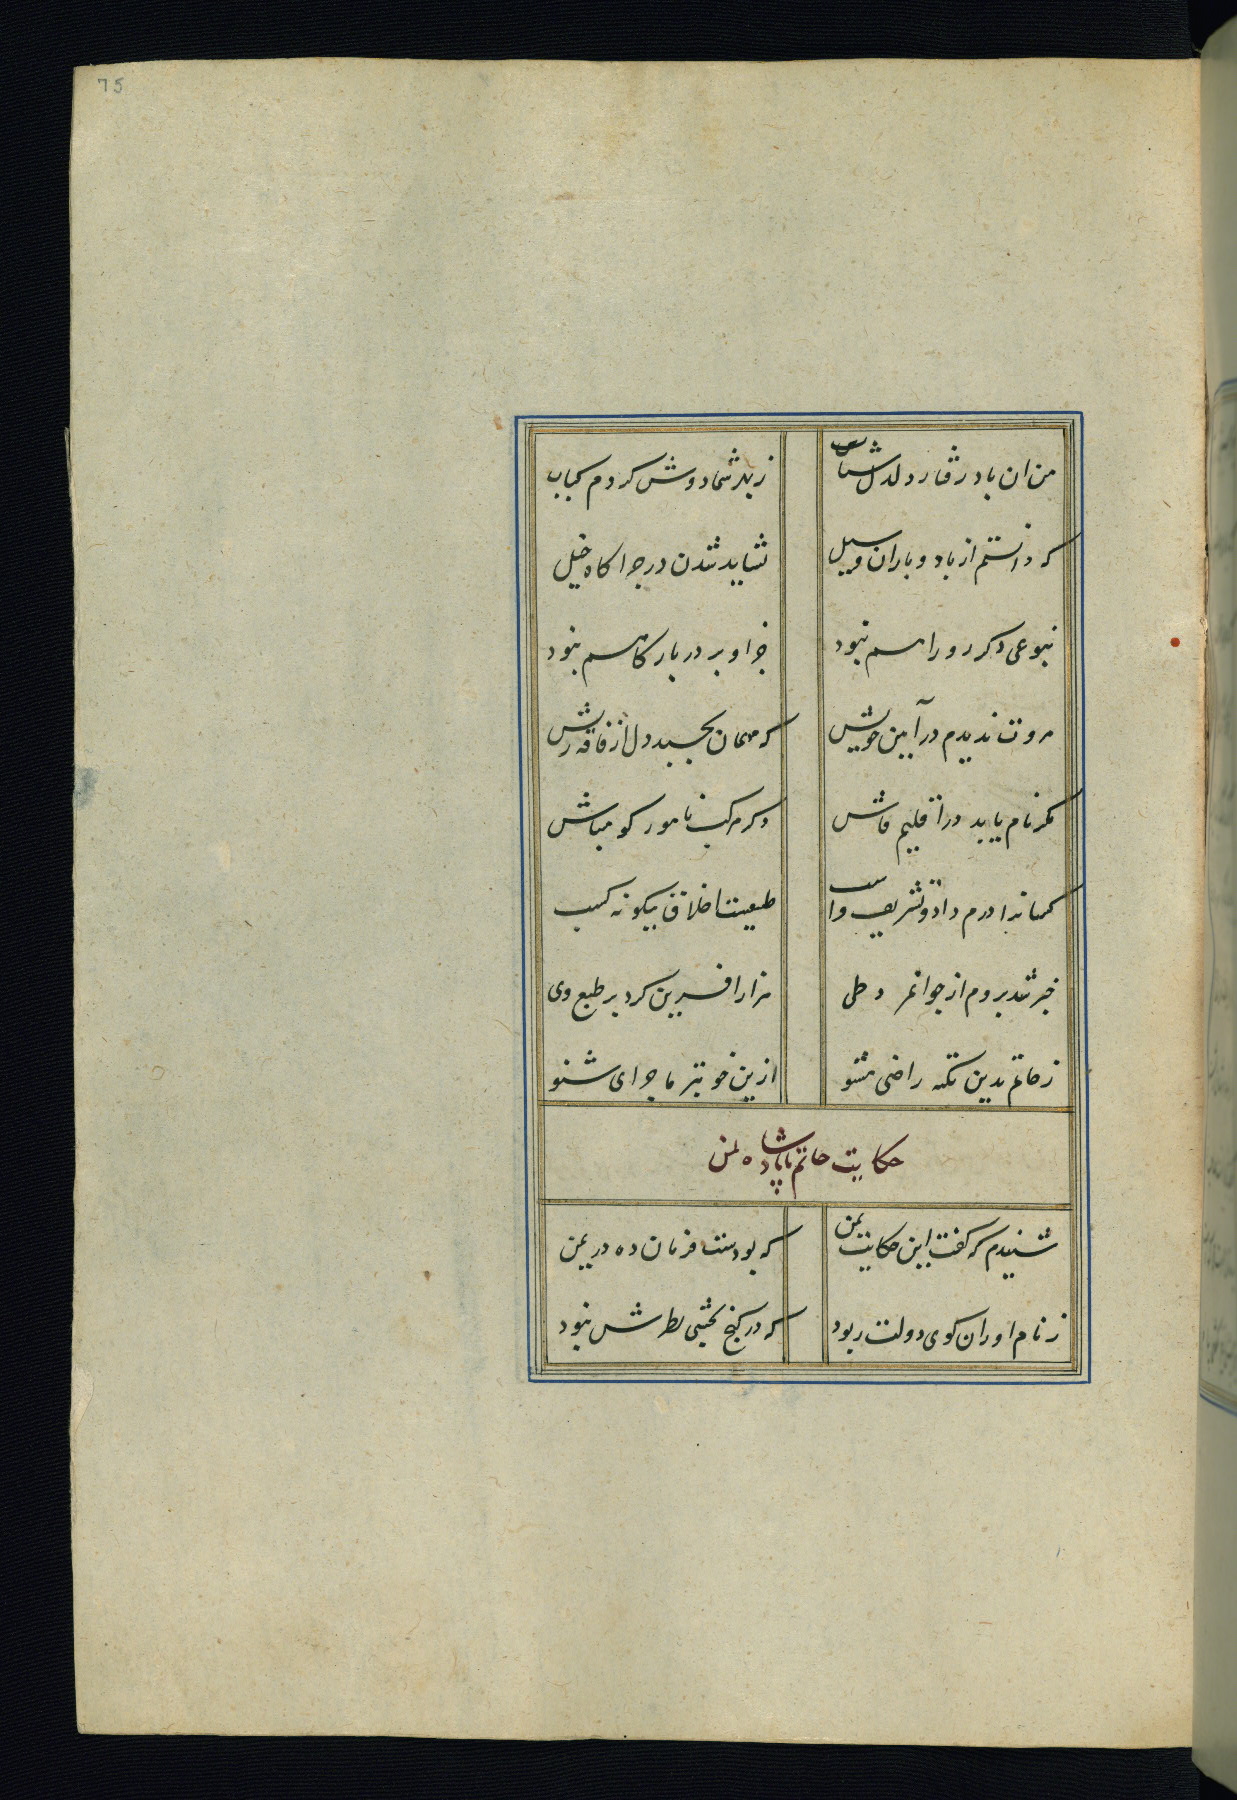 75
من ان باد رفتار دلدل شتاب
ز بهر شما دوش کردم کباب
که دانستم از باد و باران و سیل
نشاید شدن در چرا کاه خیل
بنوعی دکر رو و راهم نبود
جز او بر در بارکاهم نبود
مروت ندیدم در آیین خویش
که مهمان بخسبد دل از فاقه ریش
مکر نام یابد در اقلیم فاش
دکر مرکب نامور کو مباش
کسانرا درم داد و تشریف و اسب
طبیعیست اخلاق نیکو نه کسب
خبر شد بروم از جوانمرد طی
هزار افرین کرد بر طبع وی
ز حاتم بدین نکته راضی مشو
ازین خوبتر ماجرای شنو
حکایت حاتم با پادشاه یمن
شنیدم که کفت این حکایت بمن
که بودست فرمان ده در یمن
ز نام اوران کوی دولت ربود
که در کنج بخشی نظیرش نبود